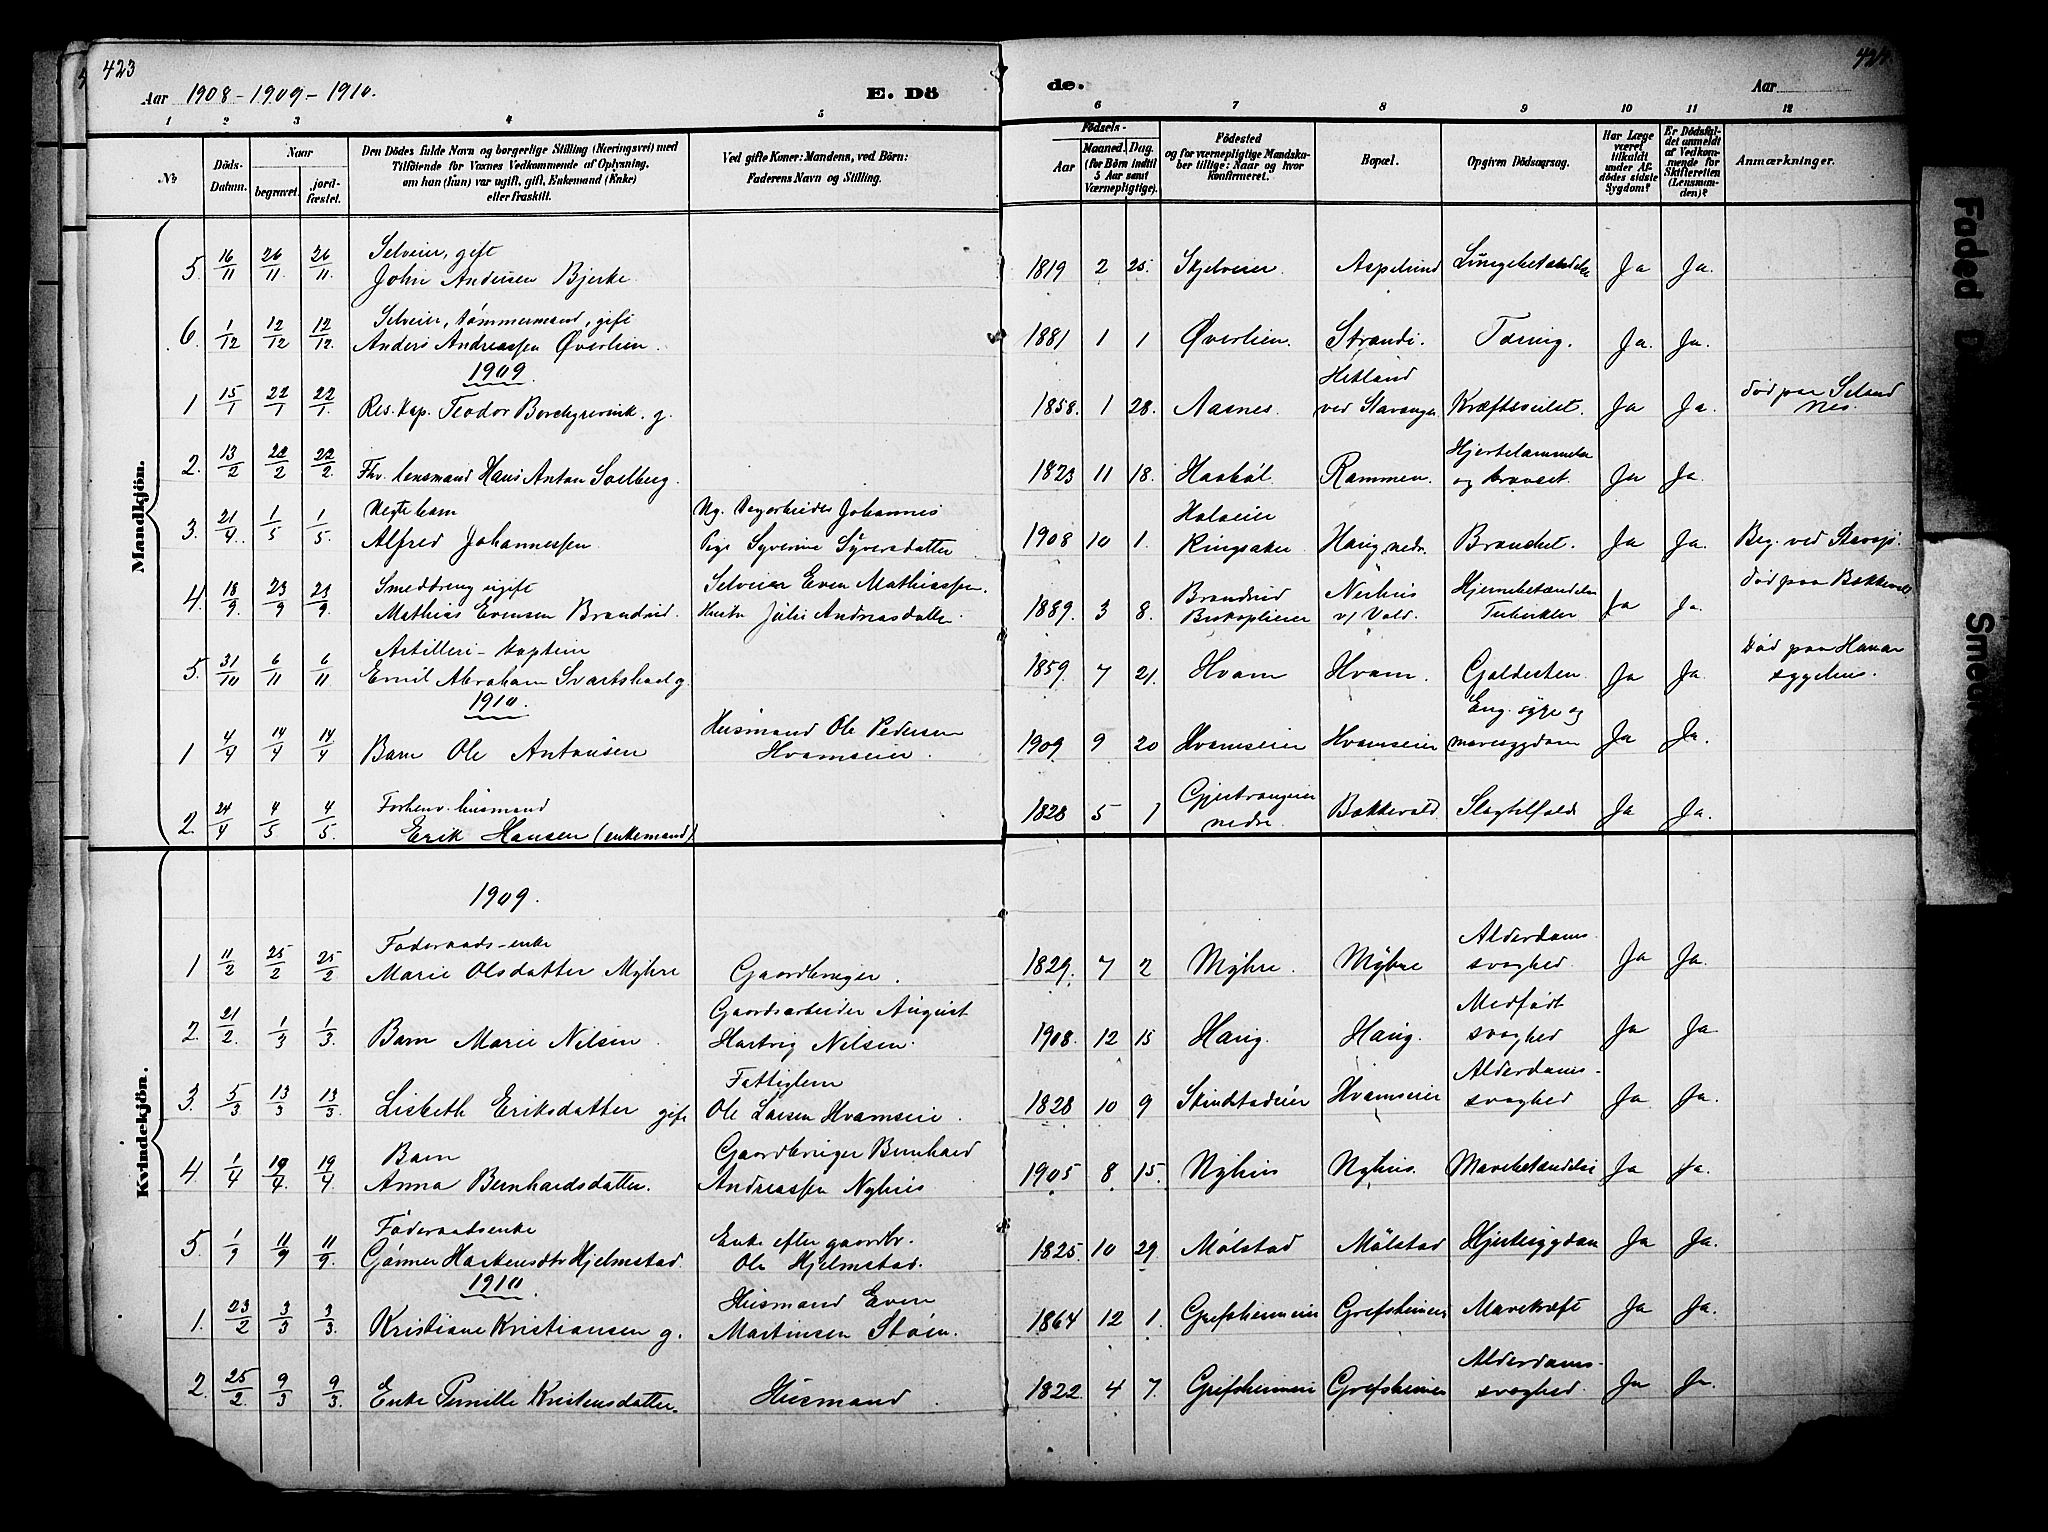 423
424.
Aar 1908-1909-1910.
E. Dö
de.
Aar
1 2 3 4 5 6 7 8 9 10 11 12
No
Döds-Datum.
Naar
begravet.
jord-fæstet.
Den Dödes fulde Navn og borgerlige Stilling (Næringsvei) med
Tilföiende for Voxnes Vedkommende af Oplysning,
om han (hun) var ugift, gift, Enkemand (Enke)
eller fraskilt.
Ved gifte Koner: Mandens, ved Börn:
Faderens Navn og Stilling.
Födsels-
Aar
Maaned. Dag.
(for Börn indtil
5 Aar samt
Værnepligtige).
Födested
og for værnepligtige Mandska-
ber tillige: Naar og hvor
konfirmeret.
Bopæl.
Opgiven Dödsaarsag.
Har Læge
været
tilkaldt
under Af-
dödes sidste
Sygdom?
Er Dödsfal-
det anmeldt
af Vedkom-
mende for
Skifteretten
(Lensman-
den)?
Anmærkninger.
Mandkjön.
5. 16/11 26/11 26/11. Selveier, gift
John Andersen Bjerke. 1819 2 25. Skjelveier. Aspelund Lungebetændelse Ja Ja.
6. 1/12 12/12 12/12. Selveier, tømmermand, gift
Anders Andreassen Øverlien. 1881 1 1 Øverlien. Strandi. Tæring. Ja. Ja.
1909.
1 15/1 22/1 22/1. Res. kap. Teodor Borchgrevink. g. 1858. 1 28. Aasnes. Hetland
ved Stavanger Kræftsvulst. Ja Ja. død paa Seland
Nes.
2. 13/2 22/2 22/2. Fhv. lensmand Hans Anton Soelberg. 1823 11 18. Haakøl. Rammen. Hjertelammelse
og bravaet. Ja Ja.
3. 21/4. 1/5 1/5. Uegte barn
Alfred Johannessen. Ug. Johannes
Pige Syverine Syversdatter 1908 10 1. Halseier
Ringsaker Haug nedr. Bronchit. Ja Ja. Beg. ved Stavsjø.
4. 18/9. 23/9 23/9. Smeddreng ugift
Mathias Evensen Brandrud. Selveier Even Mathiassen.
Hustru Julie Andreasdatter. 1889. 3 8. Brandrud
Biskoplieeier Nerhus
v/ Vold. Hjernebetændelse
Tuberkler Ja Ja. død paa Bækkevold
5. 31/10 6/11 6/11. Artilleri-kaptein
Emil Abraham Svartshaal g. 1859. 7 21. Hvam Hvam. Galdesten. Ja Ja. Død paa Hamar
sygehus.
1910.
1 4/4 14/4 14/4 Barn Ole Antonsen Husmand Ole Pedersen
Hvamseier. 1909 9 20 Hvamseier Hvamseier Eng. syge og
mavesygdom Ja Ja.
2. 24/4 4/5 4/5. Forhenv. husmand
Erik Hansen (enkemand) 1828 5 1 Gjestvangeier
nedre Bækkevold. Slagtilfælde Ja Ja.
Kvindekjön.
1909.
1 11/2 25/2 25/2 Føderaads-enke
Marie Olsdatter Myhre Gaardbruger. 1829. 7 2 Myhre. Myhre Alderdoms-
svaghed. Ja Ja.
2. 21/2. 1/3 1/3. Barn Marie Nilsen. Gaardsarbeider August
Hartvig Nilsen. 1908. 12 15 Haug. Haug. Medfødt
svaghed Ja Ja
3. 5/3 13/3 13/3. Lisbeth Eriksdatter gift Fattiglem
Ole Larsen Hvamseie. 1828 10 9 Skindstadeier Hvamseier Alderdoms-
svaghed Ja. Ja.
4. 1/4 19/4. 19/4 Barn
Anna Bernhardsdatter. Gaardbruger Bernhard
Andreassen Nyhus 1905 8 15. Nyhus Nyhus. Mavebetændelse Ja Ja.
5. 1/9 11/9 11/9. Føderaadsenke
Gønner Haakensdtr Hjelmstad. Enke efter gaardbr.
Ole Hjelmstad. 1825 10 29. Mølstad Mølstad Hjertesygdom Ja Ja.
1910.
1. 23/2 3/3 3/3. Kristiane Kristiansen g. Husmand Even
Martinsen Støen. 1864 12 1. Grefsheimeier Grefsheimeier Mavekræft Ja Ja.
2. 25/2. 9/3 9/3. Enke Pernille Kristensdatter. Husmand 1822. 4 7. Grefsheimeie Grefsheimeier Alderdoms-
svaghed. Ja Ja.
Faded D
Smed